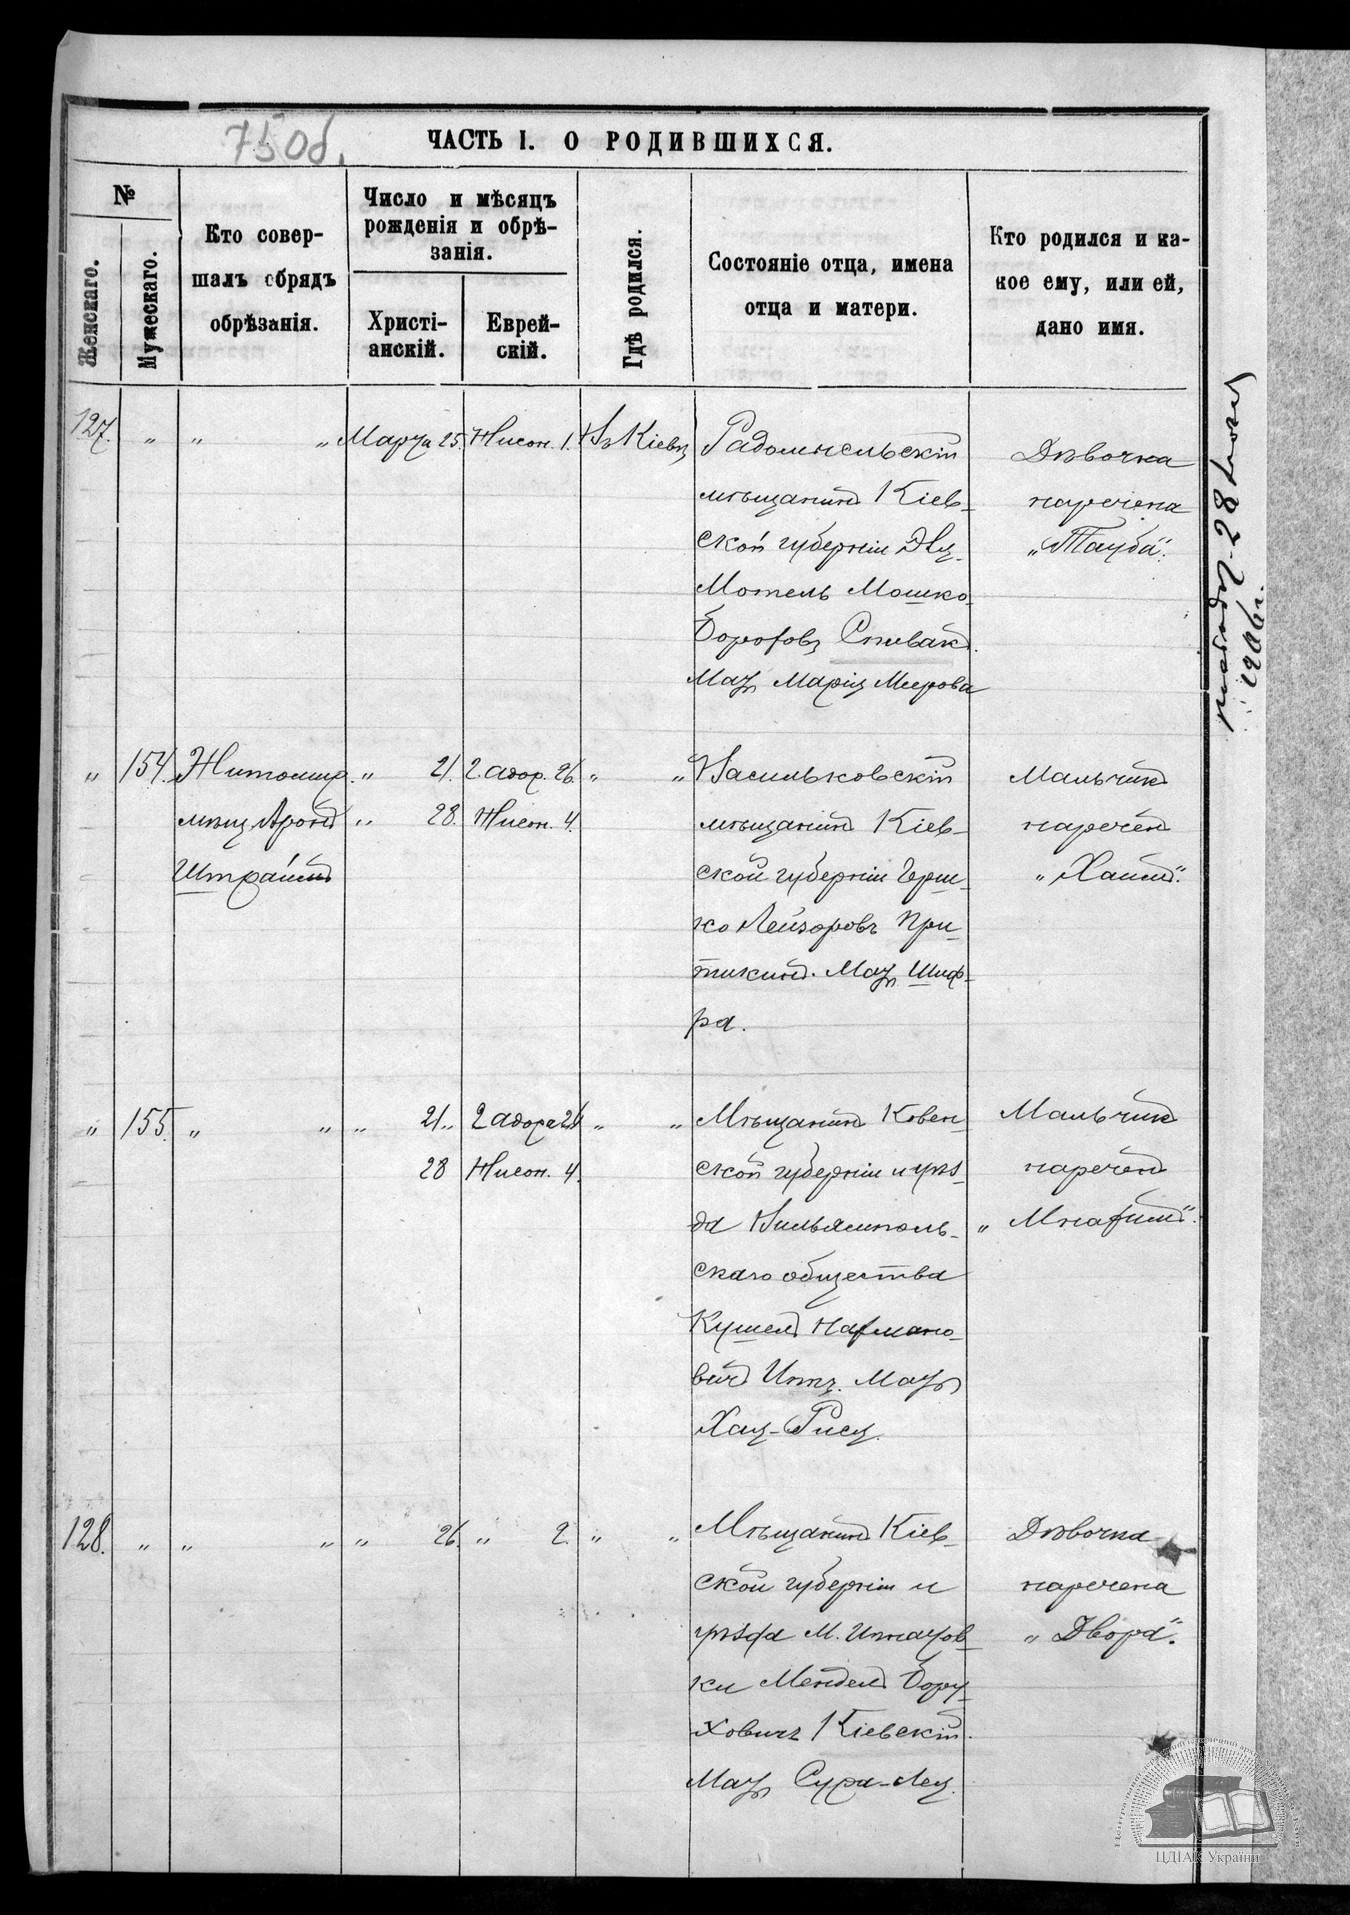 75 об.
ЧАСТЬ I. О РОДИВШИХСЯ.
№
Женскаго.
Мужескаго.
Кто совер-
шалъ обрядъ
обрѣзанія.
Число и мѣсяцъ
рожденія и обрѣ-
занія.
Христі-
анскій.
Еврей-
скій.
Гдѣ родился.
Состояніе отца, имена
отца и матери.
Кто родился и ка-
кое ему, или ей,
дано имя.
127. " " " Марта 25. Нисон. 1. Въ Кіевѣ
Радомысльскій
мѣщанинъ Кіев-
ской губерніи
Мотель Мошко-
Боруховъ Спивакъ.
Мать Марія Меерова
Дѣвочка
наречена
„Тауба".
" 154. Житомир. " 21. 2 адор. 26. " "
мѣщ. Аронъ " 28. Нисон. 4.
Штраймъ
Васильковскій
мѣщанинъ Кіев-
ской губерніи Герш-
ко Лейзоровъ При-
тыкинъ. Мать Шиф-
ра.
Мальчикъ
нареченъ
„Хаимъ".
" 155. " " " 21. 2 адора 26 " "
28 Нисон. 4.
Мѣщанинъ Ковен-
ской губерніи и уѣз-
да Вильямполь-
скаго общества
Кушель Нахмано-
вичъ Итъ. Мать
Хая-Рися.
Мальчикъ
нареченъ
„Мнахимъ".
128. " " " " 26. " 2. " "
Мѣщанинъ Кіев-
ской губерніи и
уѣзда М. Игнатов-
ки Мендель Бору-
ховичъ Кіевскій.
Мать Сура-Лея.
Дѣвочка
наречена
„Двора".
28 Іюня
1906 г.
ЦДІАК України